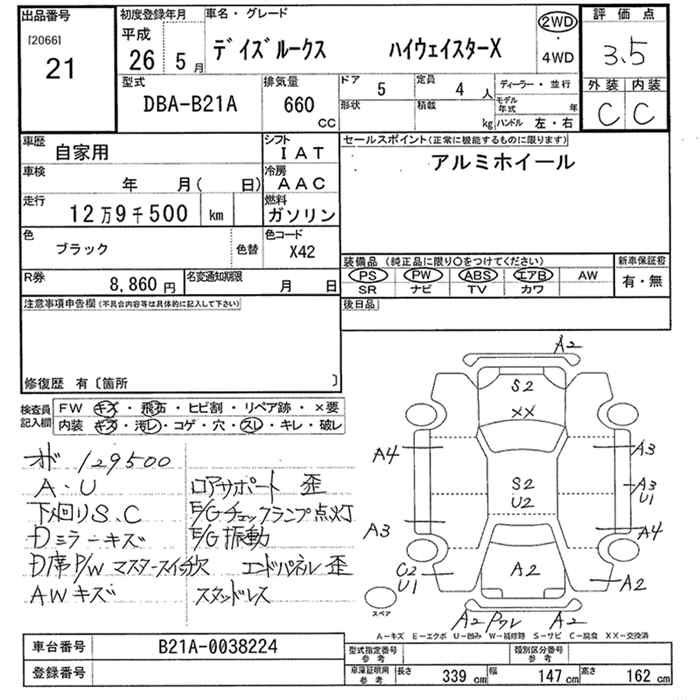 出品番号
[2066]
21
初度登録年月
平成
26年 5月
車名・グレード
デイズルークス ハイウェイスターX
2WD
・
4WD
評価点
3.5
外装 内装
C C
型式
DBA-B21A
排気量
660
CC
ドア 5
定員 4 人
形状
積載 kg
ディーラー・並行
モデル年式 年
ハンドル 左・右
車歴
自家用
シフト
IAT
車検
年 月( 日)
冷房
AAC
走行
12万9千500 km
燃料
ガソリン
色
ブラック
色替
色コード
X42
R券
8,860 円
名変通知期限
月 日
セールスポイント(正常に機能するものに限ります)
アルミホイール
装備品(純正品に限り○をつけてください)
PS PW ABS エアB AW
SR ナビ TV カワ
新車保証書
有・無
後日品
注意事項申告欄(不具合内容等は具体的に記入して下さい)
修復歴 有〔箇所 〕
検査員記入欄
FW キズ・飛石・ヒビ割・リペア跡・×要
内装 キズ・汚レ・コゲ・穴・スレ・キレ・破レ
オド 129500
A・U
下廻りS、C
Dミラーキズ
D席P/W マスタースイッチ欠
AWキズ
ロアサポート 歪
E/Gチェックランプ点灯
E/G振動
エンドパネル歪
スタッドレス
A2
S2
XX
A4
A3
S2
U2
A3
U1
A3
A4
C2
U1
A2
A2
A2 Pクレ A2
スペア
A-キズ E-エクボ U-凹み W-補修跡 S-サビ C-腐食 XX-交換済
車台番号
B21A-0038224
登録番号
型式指定番号
参考
類別区分番号
参考
車庫証明用
参考
長さ 339 cm
幅 147 cm
高さ 162 cm